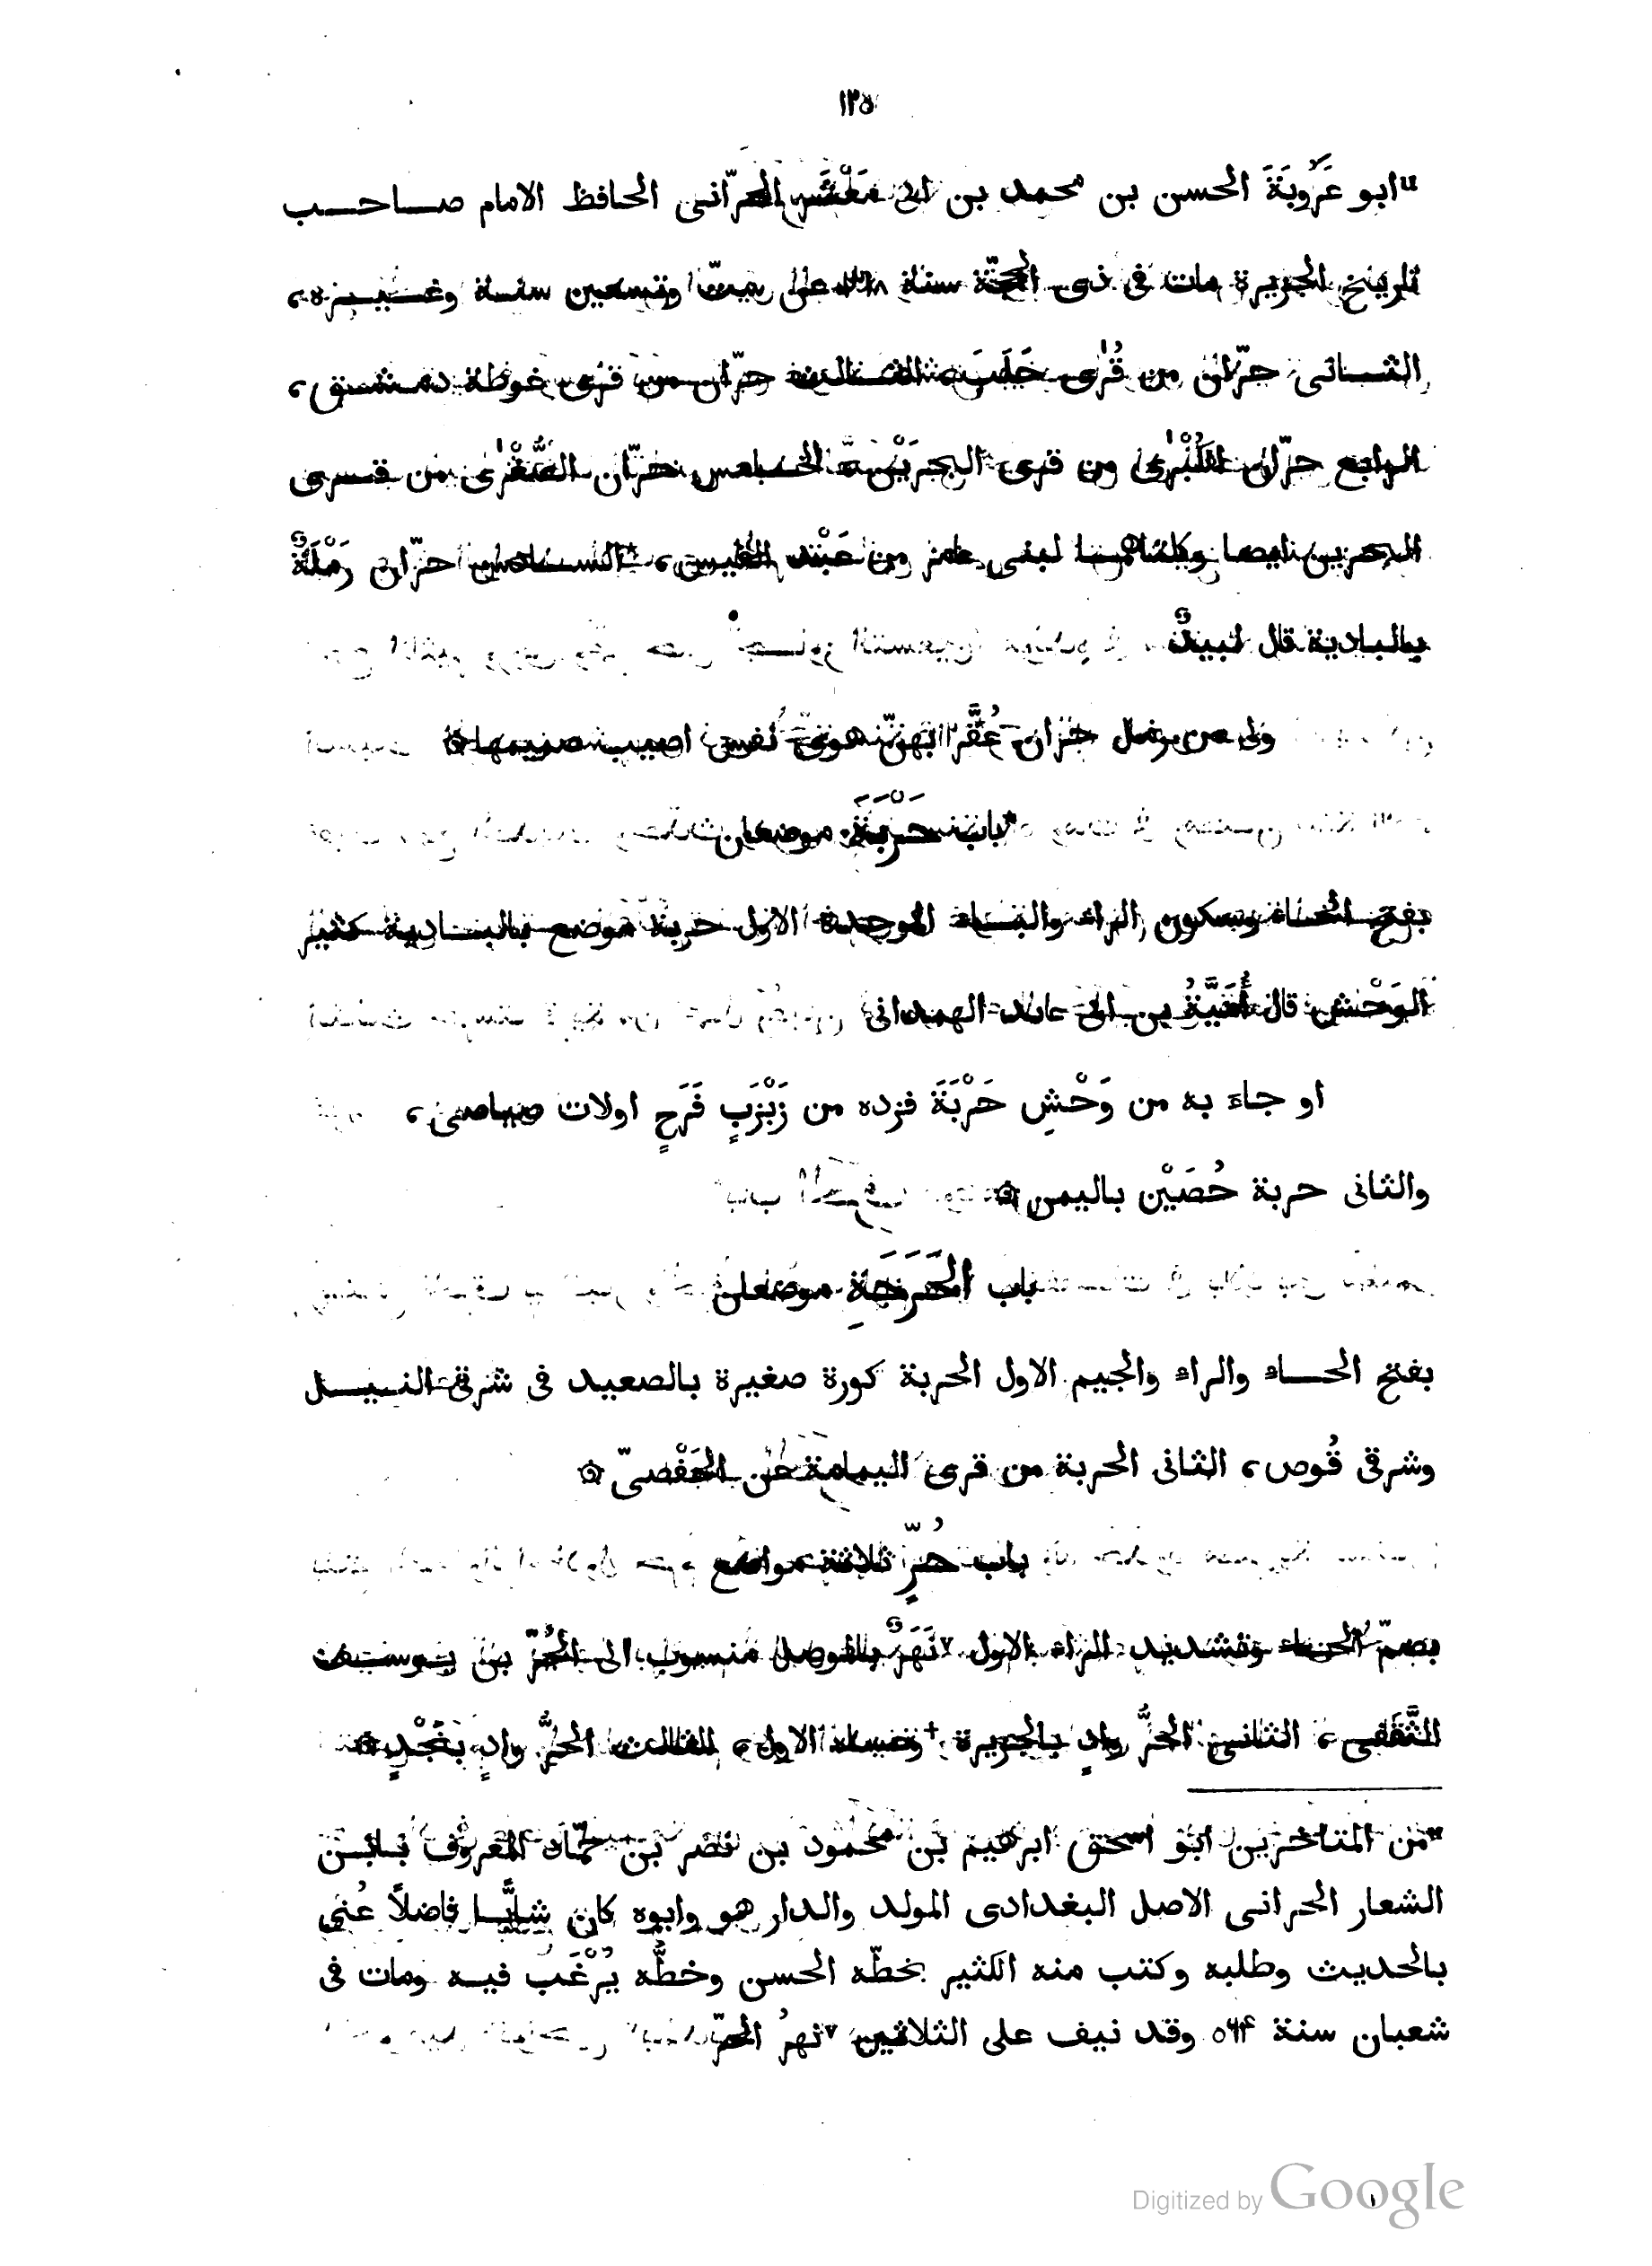 ١٢٥
"ابو عَرُوبَةَ الحسن بن محمد بن ابى مَعْشَر الحرّانى الحافظ الامام صاحب
تاريخ الجزيرة مات فى ذى الحجّة سنة ٣١٨ على ستّ وتسعين سنة وغيره،
الثانى حرّان من قُرى حَلَبَ، الثالث حرّان من قرى غوطة دمشق،
الرابع حرّان الكُبْرى من قرى البحرَيْن، الخامس حرّان الصُّغْرى من قرى
البحرين ايضا وكلتاهما لبنى عامر من عَبْد القيس، السادس حرّان رَمْلَةٌ
بالبادية قال لبيدٌ
اصيب صريمها ۞
باب حَرْبَةَ موضعان
بفتح الحاء وسكون الراء والباء الموحدة الاول حربة موضع بالبادية كثير
الوَحْش قال أُمَيَّةُ بن ابى عائد الهمدانى
او جاء به من وَحْشِ حَرْبَةَ فرده من رَبْرَبٍ مَرَحٍ اولات صياصى،
والثانى حربة حُصَيْن باليمن ۞
باب الحَرَجَةِ موضعان
بفتح الحاء والراء والجيم الاول الحربة كورة صغيرة بالصعيد فى شرقى النيل
وشرقى قُوص، الثانى الحربة من قرى اليمامة عن الحَفْصىّ ۞
باب حُرٍّ ثلاثة مواضع
بضمّ الحاء وتشديد الراء الاول ٧نَهَرٌ بالموصل منسوب الى الحُرّ بن يوسف
الثَّقَفى، الثانى الحُرُّ وادٍ بالجزيرة الاول، الثالث الحُرُّ وادٍ بنَجْدٍ ۞
"من المتاخرين ابو اسحق ابرهيم بن محمود بن نصر بن حمّاد المعروف بابن
الشعار الحرانى الاصل البغدادى المولد والدار هو وابوه كان شابًّا فاضلاً عُنى
بالحديث وطلبه وكتب منه الكثير بخطّه الحسن وخطُّه يُرْغَب فيه ومات فى
شعبان سنة ٥٦٤ وقد نيف على الثلاثين ٧نهرُ الحرّ
Digitized by Google